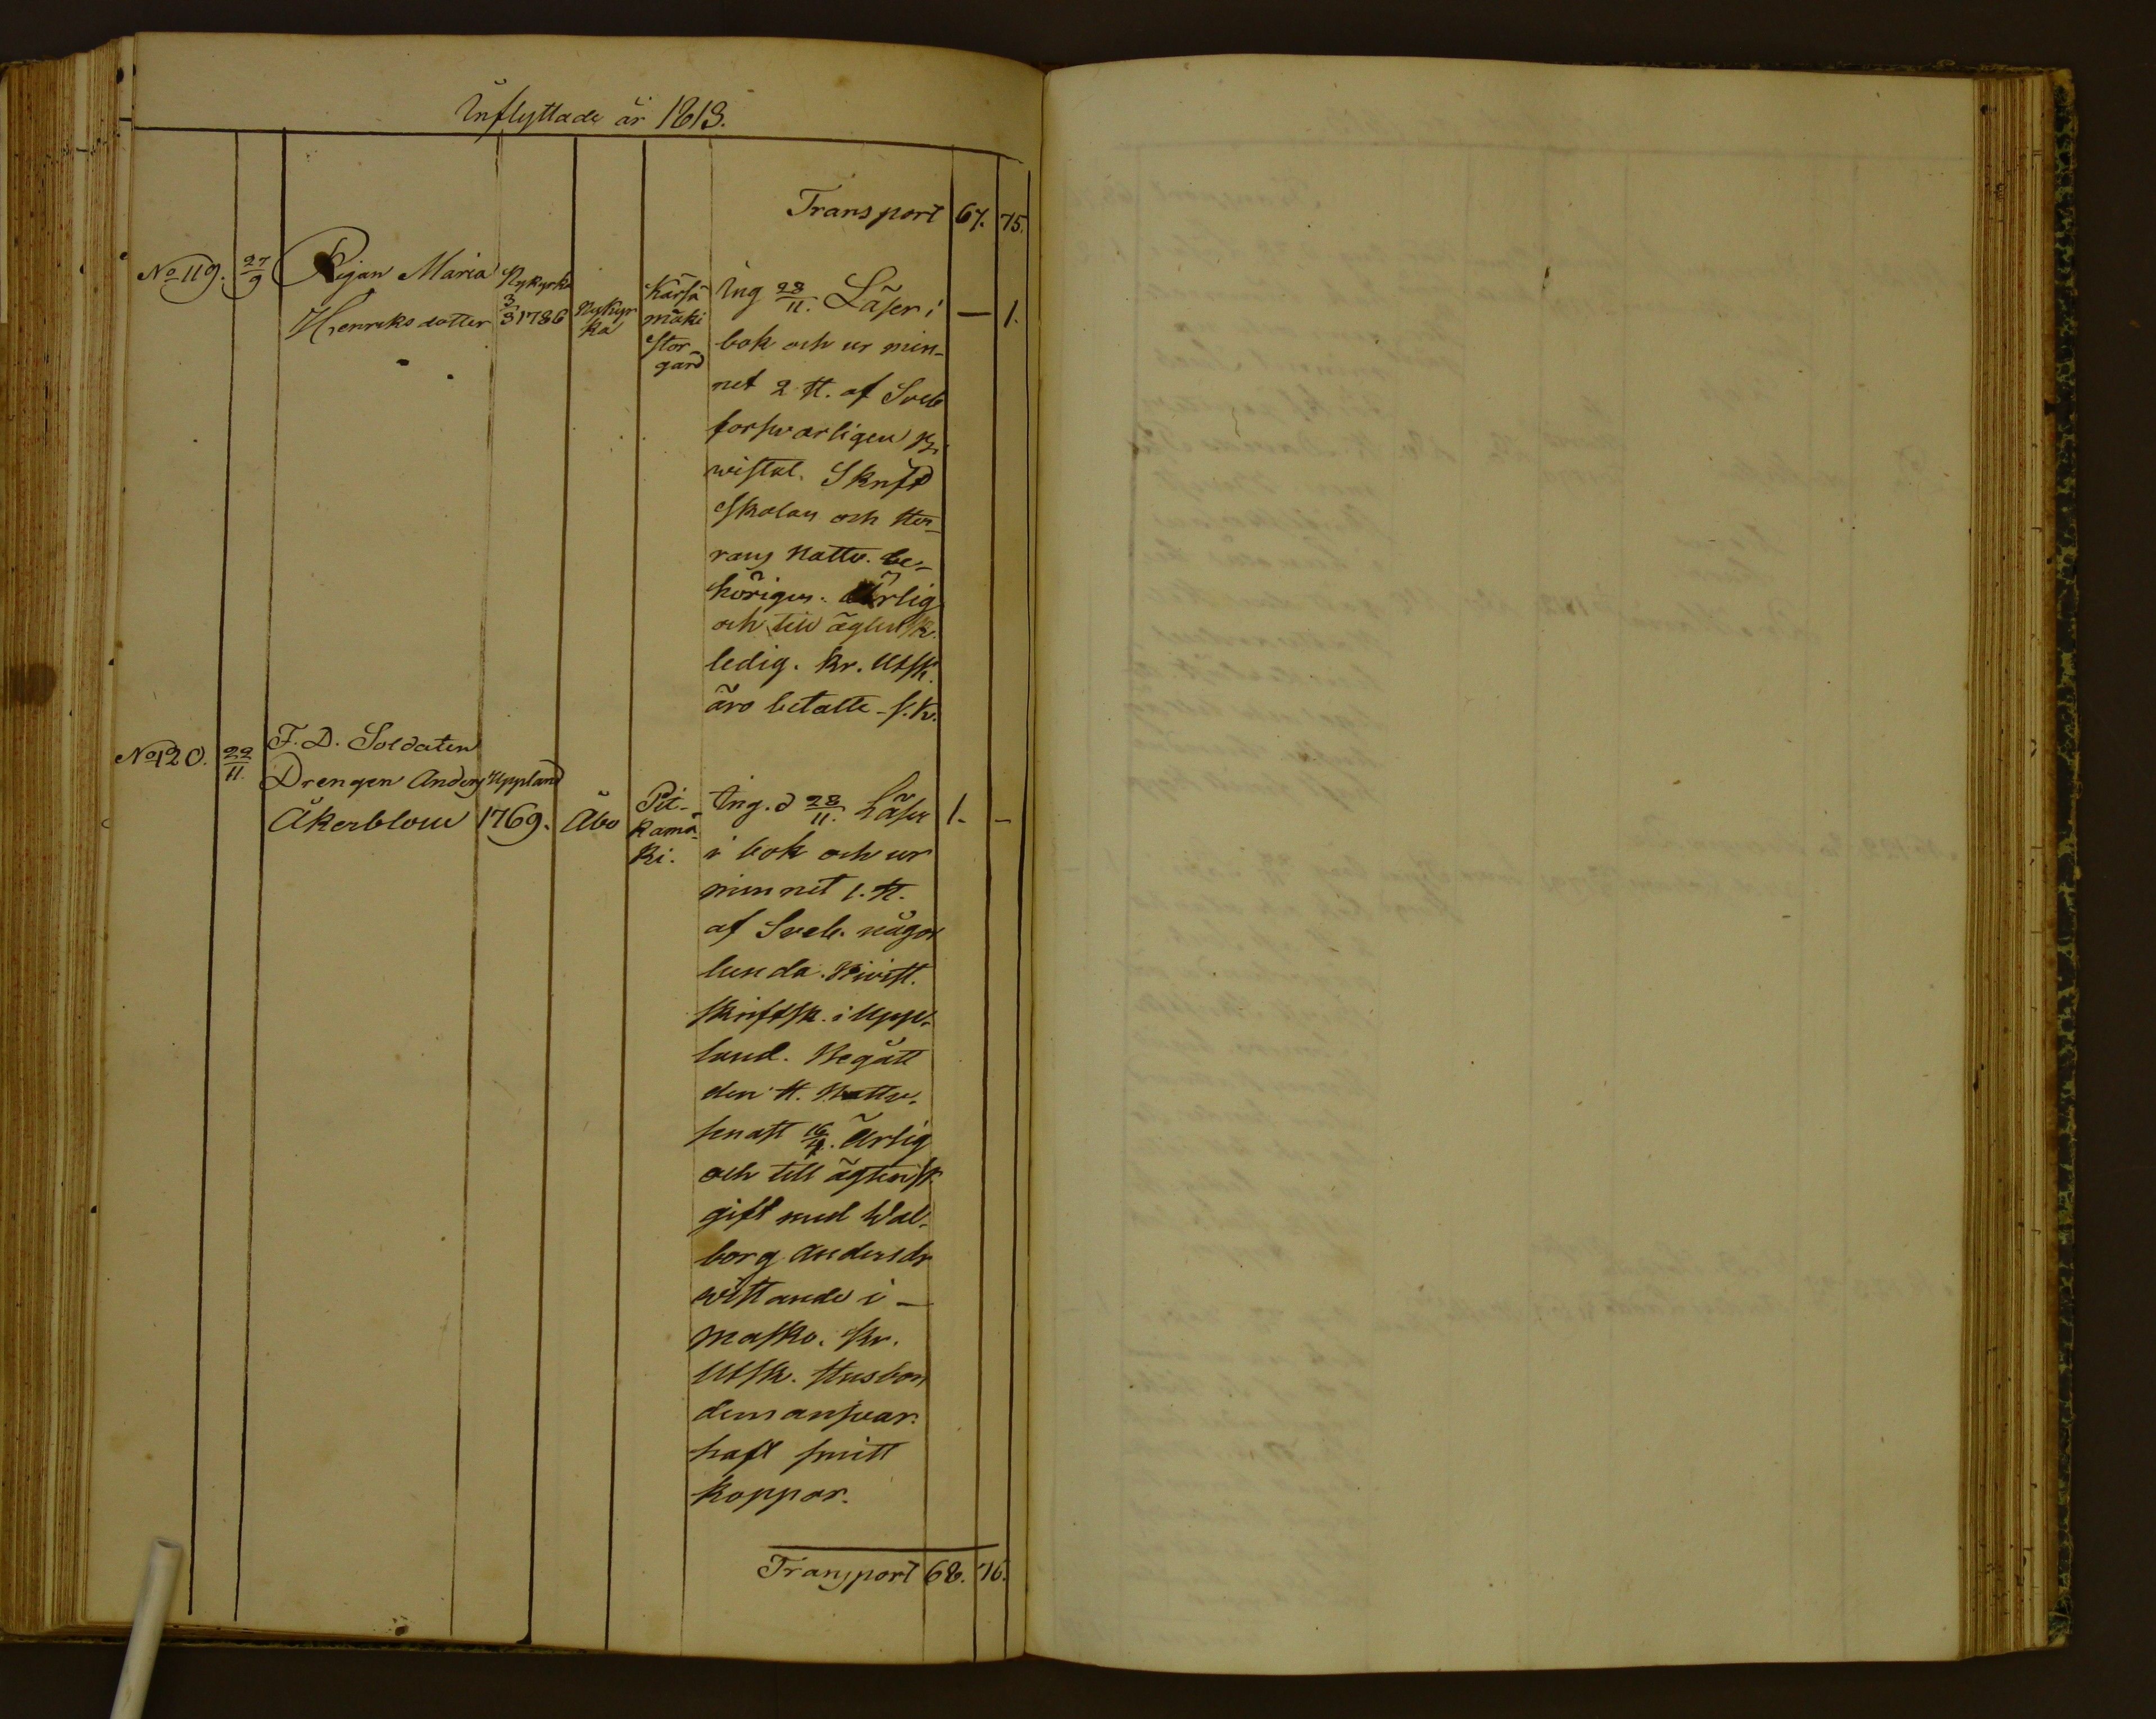 Inflyttade år 1813.
Transport 67. 75.
No 119. 27/9 Pigan Maria Henriksdotter Nykyrka 3/3 1786 Nykyrka Kärsämäki Storgård — 1.
Ing 28/11. Läser i
bok och ur min-
net 2 H. af Sveb
forsvarligen Bi
wistat. Skrift
skolan och Her-
rans Nattv. be-
hörigen. Ärlig
och till ägtensk.
ledig. Kr. Utsk.
äro betalte - s. K.
No 120. 22/11. F. D. Soldaten
Drengen Anders
Åkerblom Uppland 1769. Åbo Pitkamäki. 1. -
Ing. d 28/11. Läser
i bok och ur
minnet 1. H.
af Sveb. någor
lunda. Biwist.
skriftsk. i Upp-
land. Begått
den H. Nattv.
senast 16/4. Ärlig
och till ägtensk.
gift med Wal-
borg Andersdr
wistande i -
Masko. Kr.
Utsk. Husbon
dens ansvar.
haft smitt
koppor.
Transport 68. 76.